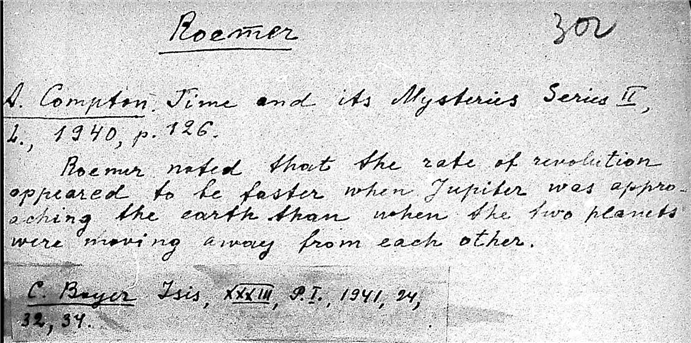 Roemer
302
A. Compton, Time and its Mysteries Series II,
L., 1940, p. 126.
Roemer noted that the rate of revolution
appeared to be faster when Jupiter was appro-
aching the earth than when the two planets
were moving away from each other.
C. Boyer Isis, XXXIII, P.I., 1941, 24,
32, 34.